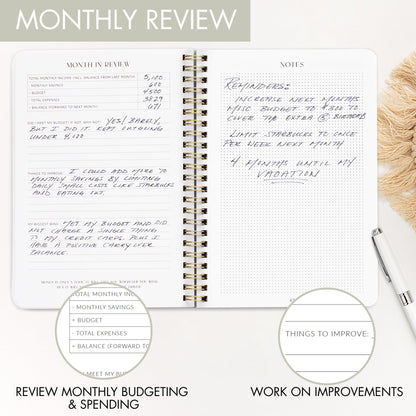 MONTHLY REVIEW
MONTH IN REVIEW
TOTAL MONTHLY INCOME (INCL. BALANCE FROM LAST MONTH) 5,100
- MONTHLY SAVINGS 600
= BUDGET 4500
- TOTAL EXPENSES 3829
= BALANCE (FORWARD TO NEXT MONTH) 671
DID I MEET MY BUDGET? IF NOT, WHY NOT? YES! BARELY,
BUT I DID IT. KEPT OUTGOING
UNDER
THINGS TO IMPROVE: I COULD ADD MORE TO
MONTHLY SAVINGS BY LIMITING
DAILY SMALL COSTS LIKE STARBUCKS
AND EATING OUT.
MY BIGGEST WINS: MET MY BUDGET AND DID
NOT CHARGE A SINGLE THING
TO MY CREDIT CARDS. PLUS I
HAVE A POSITIVE CARRY OVER
BALANCE.
NOTES
REMINDERS:
INCREASE NEXT MONTHS
MISC BUDGET TO $300 TO
COVER THE EXTRA
LIMIT STARBUCKS TO ONCE
PER WEEK NEXT MONTH
4 MONTHS UNTIL MY
VACATION
TOTAL MONTHLY INC
- MONTHLY SAVINGS
= BUDGET
- TOTAL EXPENSES
= BALANCE (FORWARD TO
I MEET MY BUDG
THINGS TO IMPROVE:
REVIEW MONTHLY BUDGETING
& SPENDING
WORK ON IMPROVEMENTS